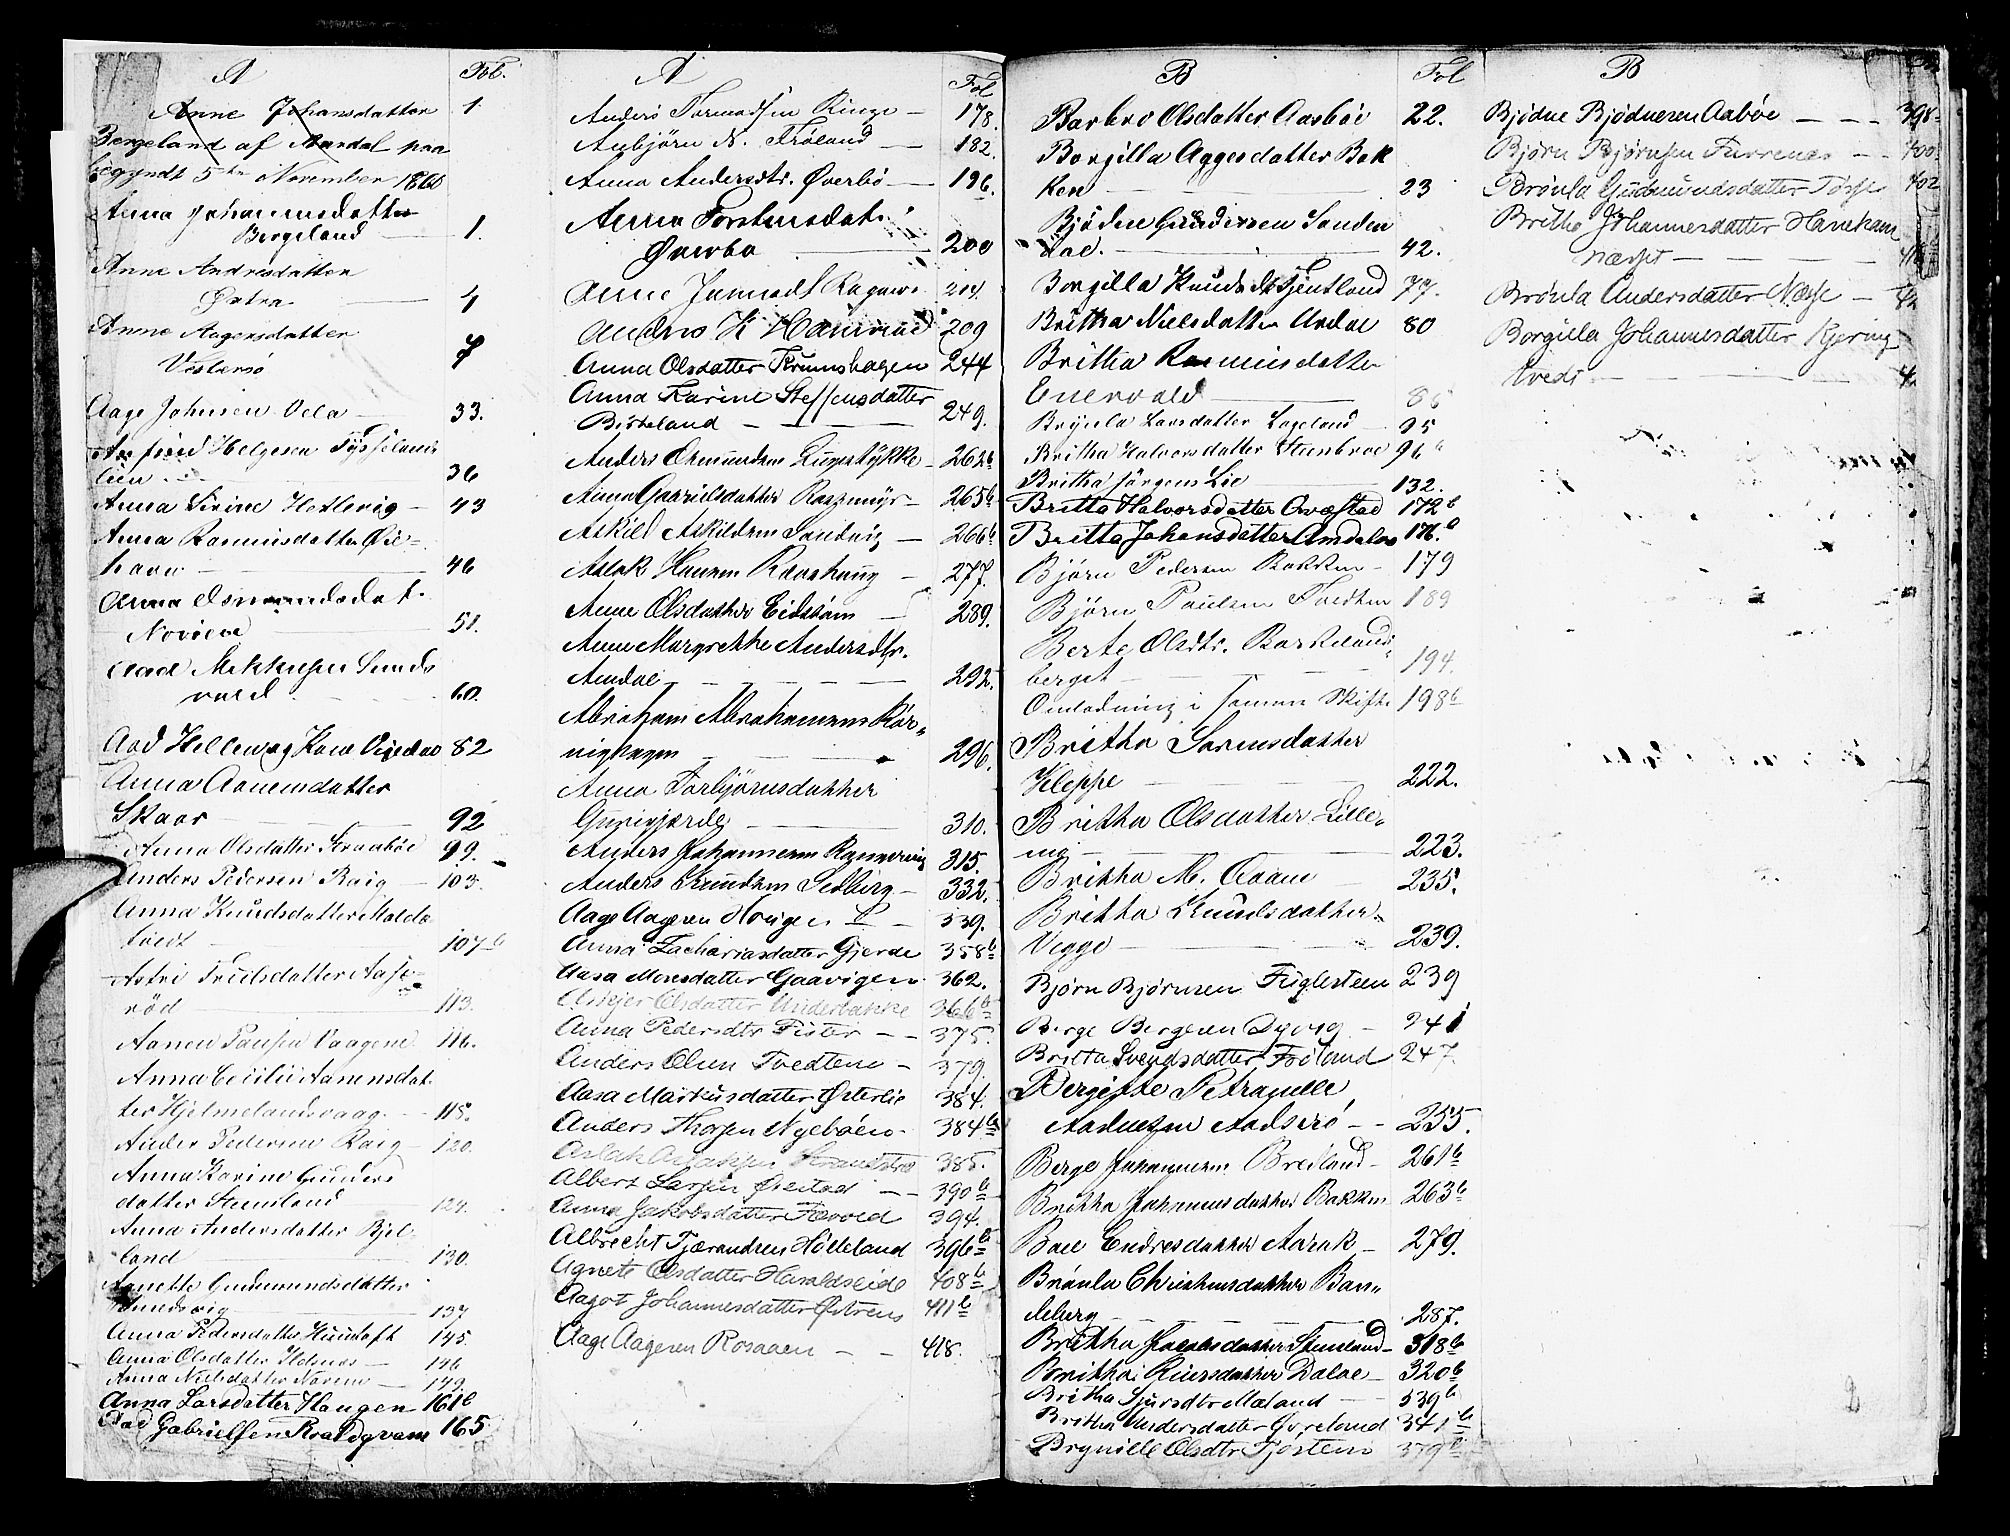 A Fol.
Anne Johansdatter 1
Bergeland af Aardal paa
begyndt 5te November 1860
Anna Johannesdatter
Bergeland 1.
Anne Andrisdatter
Østra 4
Anne Aagensdatter
Vestersø 7
Aage Johnsen Vela 33.
Helgesen Tysselands
lien 36
Anna Sirine Hetlevig 43
Anna Rasmusdatter Øie
havn 46
Anna Osmundsdat.
51.
Aad Mikkelsen Sunds
vold 60.
Aad Kone 82
Anna Aanensdatter
Skaar 92
Anna Olsdatter 99.
Anders Pedersen Kaig 103.
Anna Knudsdatter Molde
tvedt 107b
Astri Truilsdatter
rød 113.
Aanen Paulsen Vaagene 116.
Anna Cecilie Aanensdat
ter Hjelmelandsvaag 118.
Ander Pedersen Kaig 120.
Anna Karine Gunders
datter Stensland 124.
Anna Andersdatter Bjel
land 130.
Agnethe Gudmundsdatter
137
Anna Pedersdatter 145.
Anna Olsdatter Helsnæs 146
Anna Nielsdatter 149.
Anna Larsdatter Haugen 161b
Aad Gabrielsen 165
A Fol
Anders Tormodsen Ringe 178.
Anbjörn N. Fröland 182.
Anna Andersdtr. Øverbö 196.
Anna Torstensdat.
Øverbø 200
Anne 204.
Andreas K. 209
Anna Olsdatter Krunshagen 244
Anna Karine Steffensdatter
Birkeland 249.
Anders Osmundsen 262b
Anna Gabrielsdatter 265b
Askild Askildsen Sandvig 266b
Aslak Hansen Ravnhaug 277.
Anne Olsdatter Eidsham 289.
Anne Margrethe Andersdtr.
Amdal 292.
Abraham Abrahamsen Kør
vighagen 296.
Anna Torbjörnsdatter
Gunvigjærde 310.
Anders Johannesen 315.
Anders Knudsen Sedberg 332.
Aage Aagesen Hougen 339.
Anna Zachariasdatter Gjerde 358b
Aasa Monsdatter Gaarvigen 362.
Olsdatter Underbakke 366b
Anna Pedersdtr Fister 375.
Anders Olsen Tvedtene 379.
Aasa Markusdatter Østerlie 384.
Anders Thorsen Nyebøen 384b
Aslak 385.
Albert Larsen 390b
Anna Jakobsdatter 394.
Albrecht Tjerandsen Hölleland 396b
Agnete Olsdatter Haraldseide 408b
Aagot Johannesdatter Østrens 411b
Aage Aagesen Rosaaen 418.
B Fol
Barbro Olsdatter Aasböe 22.
Borgilla Aggesdatter Bak
ken 23
Bjödne Gundersen Sanden
dal. 42.
Borgilla Knudsdtr Tjentland 77.
Britha Nielsdatter Ardal 80
Britha Rasmusdatter
Enervald 85
Brynla Larsdatter Lageland 95
Britha Halvorsdatter Steenbroe 96
Britha Jörgens Lie 132.
Britta Halvorsdatter 172b
Britta Johansdatter Amdalen 176.a
Bjørn Pedersen Bakken 179
Bjørn Paulsen Tvedten 189
Berte Olsdtr. Barkelands
berget 194.
Omladning i samme Skifte 198b
Britha Sørensdatter
Kleppe 222.
Britha Olsdatter Lille
223.
Britha M. 235.
Britha Knudsdatter
Vegge 239.
Bjørn Bjørnsen Fuglesteen 239
Berge Bergesen Dyvig 241
Britta Svendsdatter Fröland 247.
Bergitte Petronelle
255.
Berge Johannesen Bredland 261b
Britha Johannesdatter Bakken 263b
Boel Endresdatter Aarak 279.
Brønla Christensdatter Ban
deberg 287.
Britha Jacobsdatter Stensland 318b
Britha Einersdatter Dalae 320b
Britha Sjursdtr Mæland 339b
Britha Andersdatter Øvreland 341b
Brynille Olsdtr Tjosteim 379b
B
Bjødne Bjødnesen Aabøe 398
Bjørn Bjørnsen Furrenæs 400
Brönla Gudmundsdatter 402
Britha Johannesdatter Hanekam
næsset
Brönla Andersdatter Næsse
Borgilla Johannesdatter Kjering
tvedt